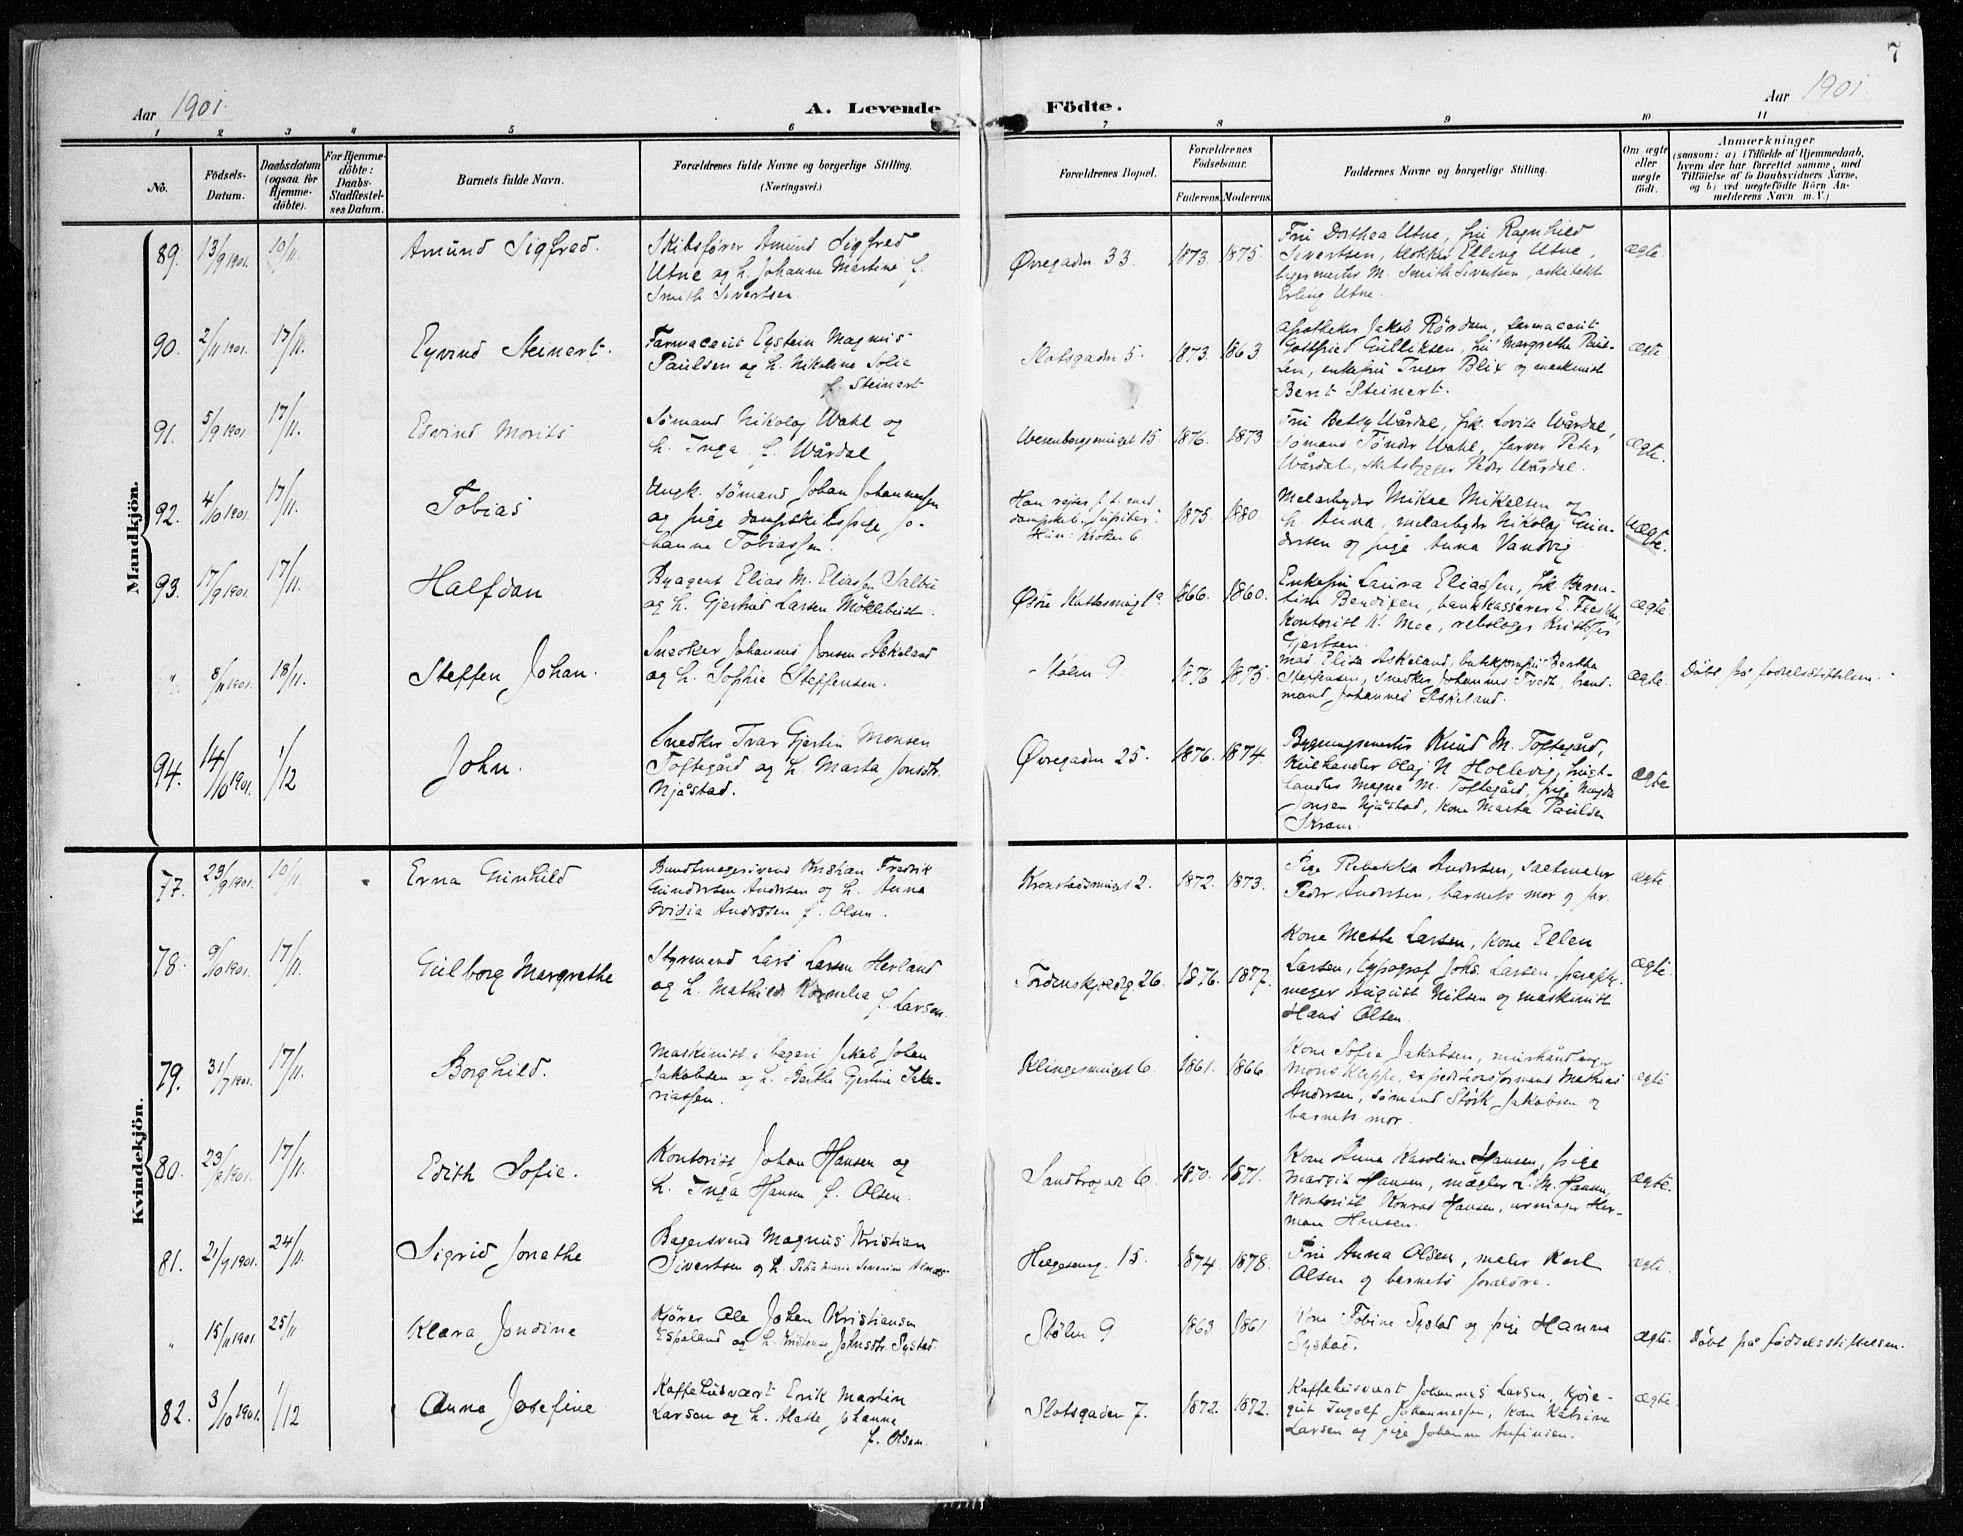 7
Aar 1901. A. Levende Födte. Aar 1901.
1 2 3 4 5 6 7 8 9 10 11
No.
Födsels-
Datum.
Daabsdatum
(ogsaa for
Hjemme-
döbte).
For Hjemme-
döbte:
Daabs-
Stadfæstel-
ses Datum.
Barnets fulde Navn.
Forældrenes fulde Navne og borgerlige Stilling.
(Næringsvei.)
Forældrenes Bopæl.
Forældrenes
Födselsaar.
Faderens. Moderens.
Faddernes Navne og borgerlige Stilling.
Om ægte
eller
uægte
födt.
Anmærkninger
(saasom: a) i Tilfælde af Hjemmedaab,
hvem der har forrettet samme, med
Tilföielse af to Daabsvidners Navne,
og b) ved uægtefödte Börn An-
melderens Navn m. V.)
Mandkjön.
89. 13/9 1901. 10/11. Amund Sigfred.
Skibsfører Amund Sigfred
Utne og h. Johanne Martine f.
Smith Sivertsen.
Øvregaden 33. 1873. 1875.
Fru Dorthea Utne, fru Ragnhild
Sivertsen, klokker Elling Utne,
M. Smith Sivertsen, arkitekt
Erling Utne.
ægte.
90. 2/11 1901. 17/11. Eyvind Steinert.
Farmaceut Eystein Magnus
Paulsen og h. Nikoline Sofie
f. Steinert
Slotsgaden 5. 1873. 1863
Apotheker Jakob Rørdam, farmaceut
Gottfried Gulliksen, fru Margrethe Paul-
sen, enkefru Inger Blix og maskinist
Bernt Steinert.
ægte.
91. 5/9 1901. 17/11. Edvind Morits
Sømand Nikolaj Wahl og
h. Inga f. Wårdal
Wesenbergsmuget 15 1876. 1873
Fru Betsy Wårdal, frk. Lovita Wårdal,
sømand Tønder Wahl, farver Peter
Wårdal, skibsbygger Peder Wårdal.
ægte.
92. 4/10 1901. 17/11. Tobias
Ungk. sømand Johan Johannessen
og pige dampskibspige Jo-
hanne Tobiassen.
Han rejser f. t. med
dampskib "Jupiter".
Hun: Kroken 6
1875. 1880.
Melarbejder Mikal Mikelsen og
h. Anna, melarbejder Nikolaj Gun-
dersen og pige Anna Vandvig.
Uægte.
93. 17/9 1901. 17/11. Halfdan
Byagent Elias M. Eliassen Salbu
og h. Gjertrud Larsen Möklebust.
Østre Kattesmug 1a 1866. 1860.
Enkefru Laura Eliassen, frk. Beren-
tine Bendixen, bankkasserer E.
kontorist K. Moe, rebslager Kristofer
Gjertsen.
ægte.
" 8/11 1901. 18/11. Steffen Johan.
Snedker Johannes Jonsen Askeland
og h. Sophie Steffensen.
Stølen 9. 1876 1875.
Mad. Elisa Askeland, butikjomfru Bertha
Steffensen, snedker Johannes Tvedt, brand-
mand Johannes Askeland.
ægte. Döbt på fødselsstiftelsen.
94. 14/10 1901. 1/12 John.
Snedker Ivar Gjertin Monsen
Toftegård og h. Marta Jonsdtr.
Njåstad.
Øvregaden 25. 1876. 1874.
Bygningsmester Knud M. Toftegård,
kulhandler Olaj N Hollevig, frugt-
handler Magne M. Toftegård, pige Magda
Jonsen Njåstad, kone Marta Paulsen
Skram.
ægte
Kvindekjön.
77. 23/9 1901. 10/11. Erna Gunhild
Bundtmagersvend Kristian Fredrik
Gundersen Andersen og h. Anna
Ovidia Anderssen f. Olsen.
Kronstadsmuget 2. 1872. 1873.
Pige Rebekka Andersen, saelmaler
Peder Andersen, barnets mor og far.
ægte.
78. 9/10 1901. 17/11. Gulborg Margrethe
Styrmand Lars Larsen Herland
og h. Mathilde Kornelia f. Larsen.
Tordenskjoldsg 26. 1876. 1877.
Kone Mette Larsen, kone Ellen
Larsen, typograf Johs. Larsen,
mager August Nilsen og maskinist
Hans Olsen.
ægte.
79. 31/7 1901. 17/11. Borghild.
Maskinist i bageri Jakob Johan
Jakobsen og h. Berthe Gjertine Saka-
riassen.
Klingesmuget 6. 1861. 1866.
Kone Sofie Jakobsen, murhåndlanger
Mons Kleppe, expeditionsformand Mathias
Andersen, sømand Størk Jakobsen og
barnets mor.
ægte
80. 23/8 1901. 17/11. Edith Sofie.
Kontorist Johan Hansen og
h. Inga Hansen f. Olsen.
Sandbrogad 6 1870. 1871.
Kone Anna Karoline Hansen, pige
Margit Hansen, mægler L. M. Hansen,
kontorist Konrad Hansen, urmager Her-
man Hansen.
ægte.
81. 21/9 1901. 24/11. Sigrid Jonethe
Bagersvend Magnus Kristian
Sivertsen og h. Petra Marie Severine Almås
Helgesensg. 15. 1874. 1878.
Fru Anna Olsen, maler Karl
Olsen og barnets forældre.
ægte.
" 15/11 1901. 25/11 Klara Jondine
Kjører Ole Johan Kristiansen
Espeland og h. Kristense Johnsdtr. Systad.
Stølen 9. 1863. 1861
Kone Tobine Systad og pige Hanna
Systad.
ægte. Döbt på fødselsstiftelsen.
82. 3/10 1901. 1/12 Anna Josefine
Kaffehusvært Erik Martin
Larsen og h. Alette Johanne
f. Olsen.
Slotsgaden 7. 1872. 1872.
Kaffehusvært Johannes Larsen, kjøre-
gut Ingolf Johannessen, kone Katrine
Larsen og pige Johanne Anfinsen.
ægte.